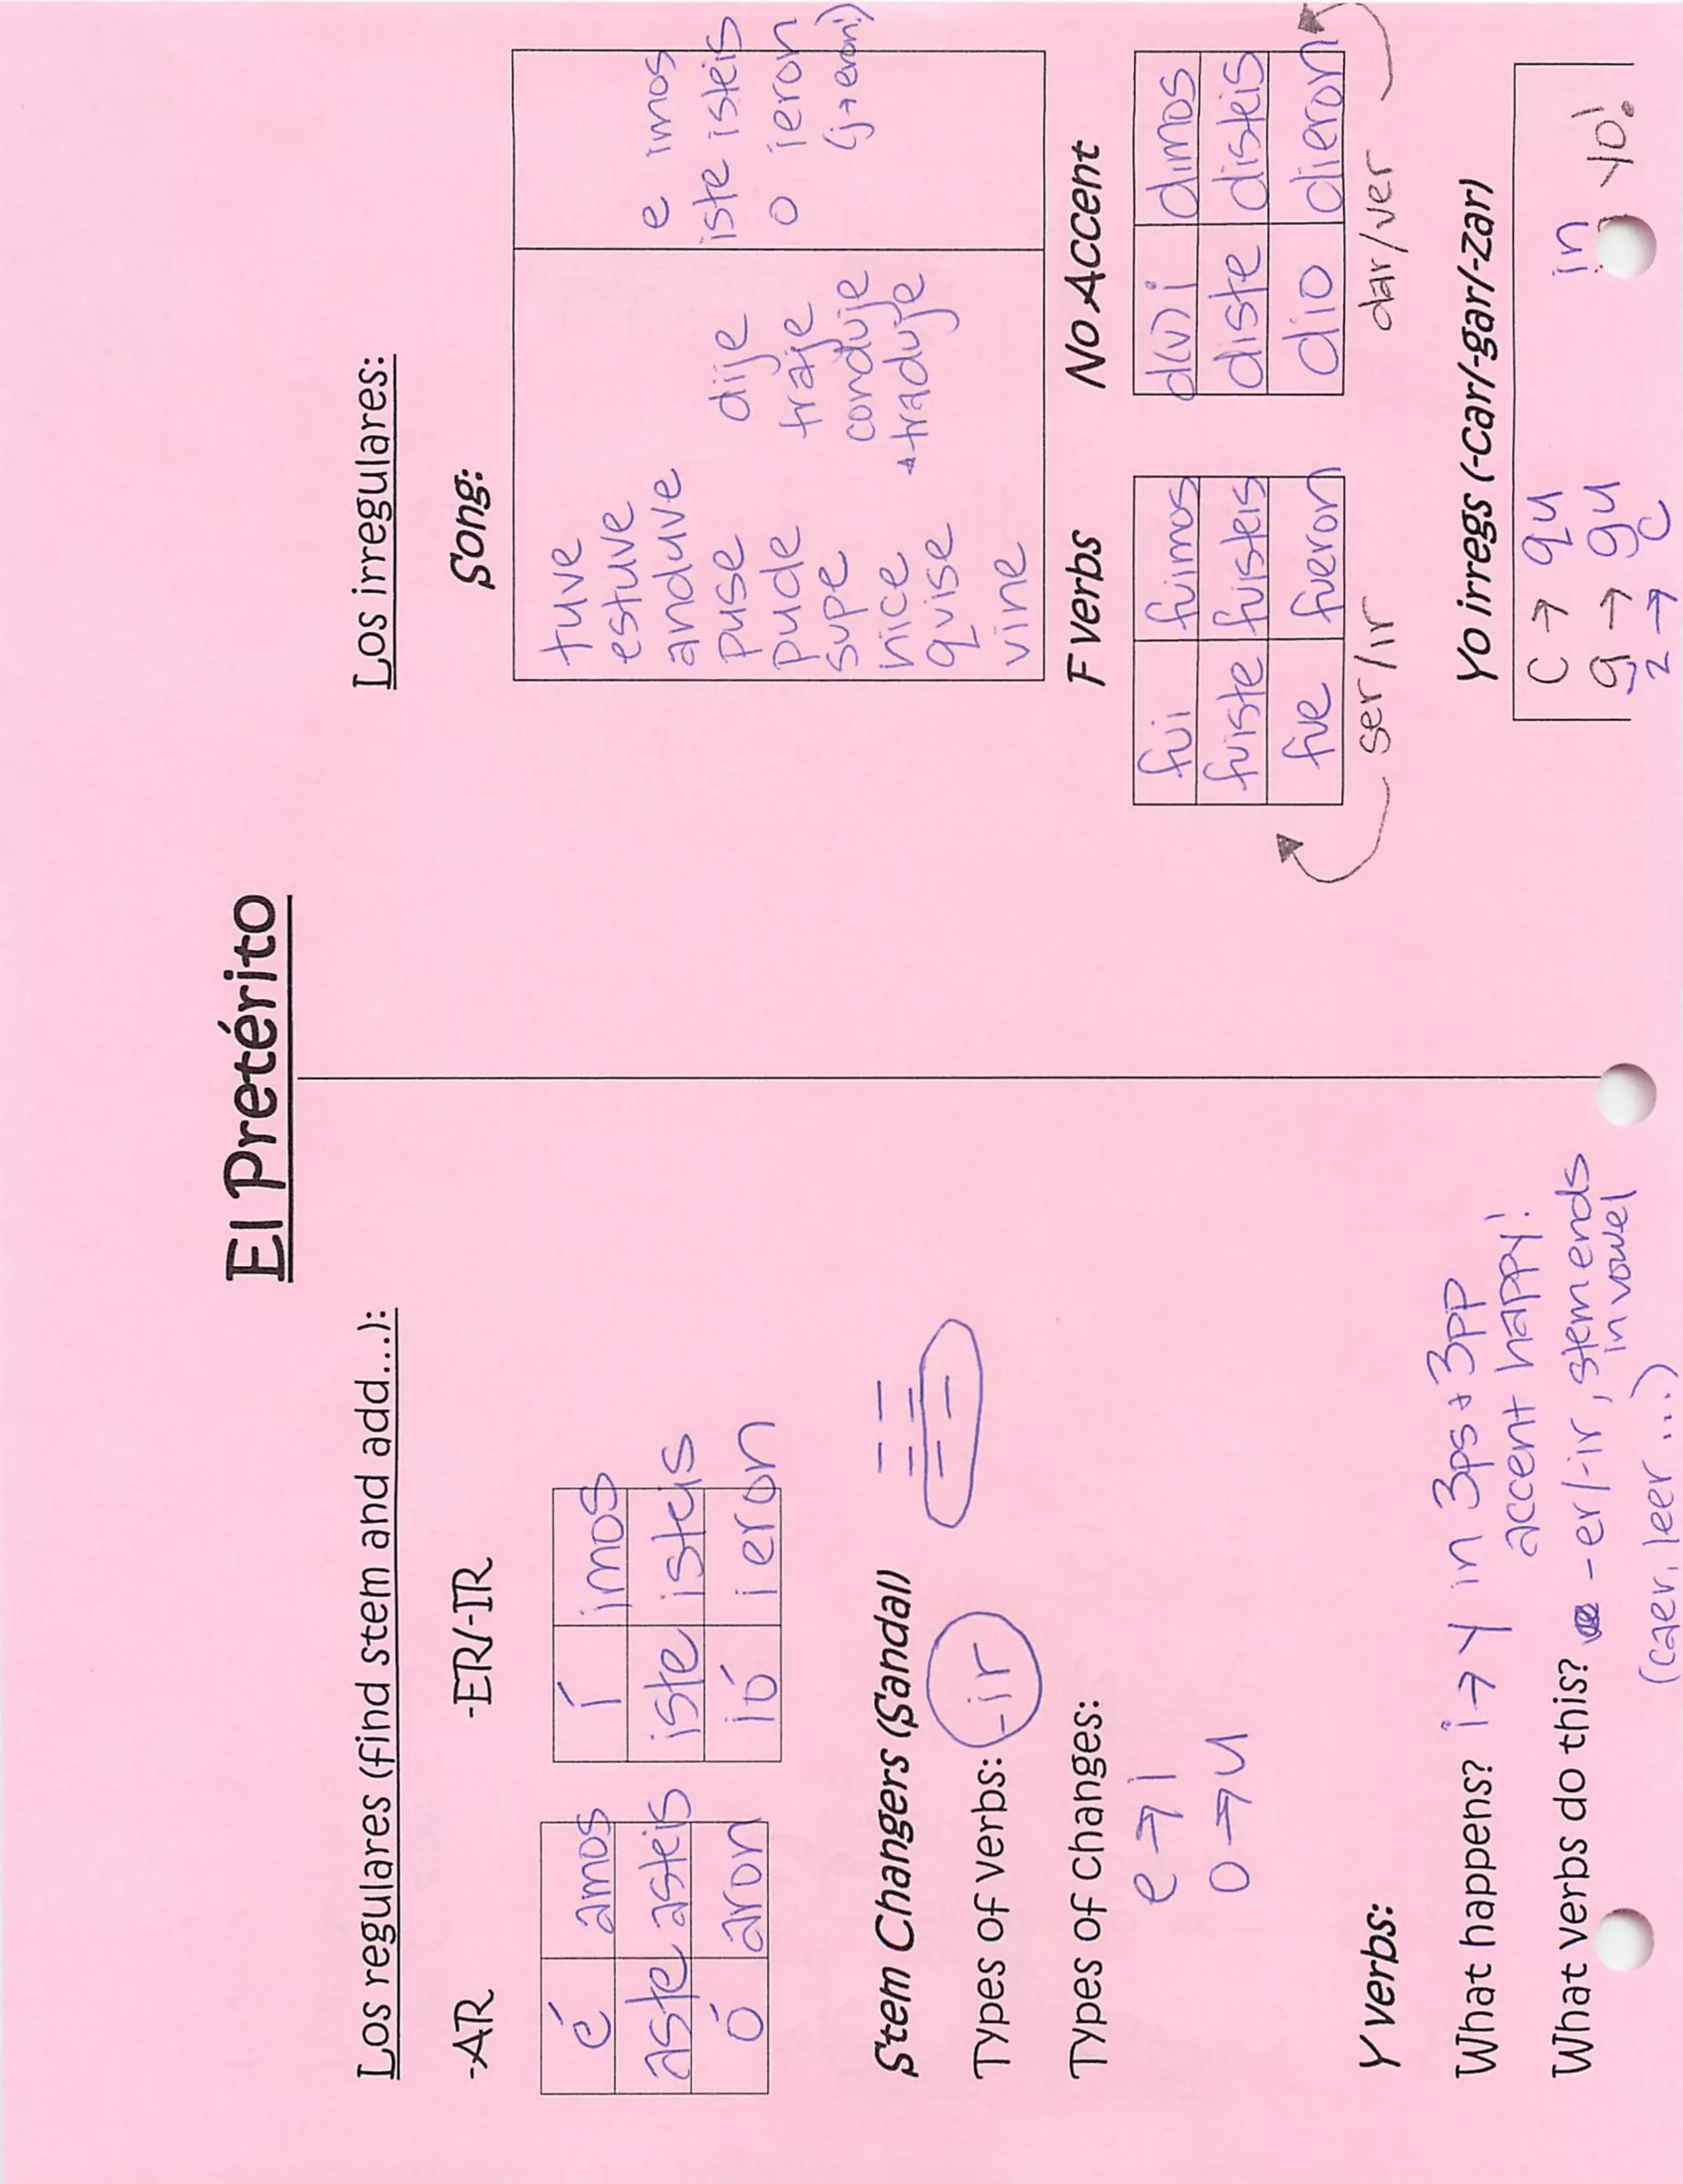 El Pretérito
Los regulares (find stem and add...):
-AR
é amos
aste asteis
ó aron
-ER/-IR
í imos
iste isteis
ió ieron
Stem Changers (Sandal)
Types of verbs: -ir
Types of changes:
e → i
o → u
Y verbs:
What happens? i → y in 3ps + 3pp
accent happy!
What verbs do this? -er/-ir, stem ends
in vowel
(caer, leer ...)
Los irregulares:
Song:
tuve
estuve
anduve
puse
pude
supe
hice
quise
vine
dije
traje
conduje
+traduje
e imos
iste isteis
o ieron
(j→eron!)
F verbs
fui fuimos
fuiste fuisteis
fue fueron
ser/ir
No Accent
d(v)i dimos
diste disteis
dio dieron
dar/ver
Yo irregs (-car/-gar/-zar)
c → qu
g → gu
z → c
in yo!